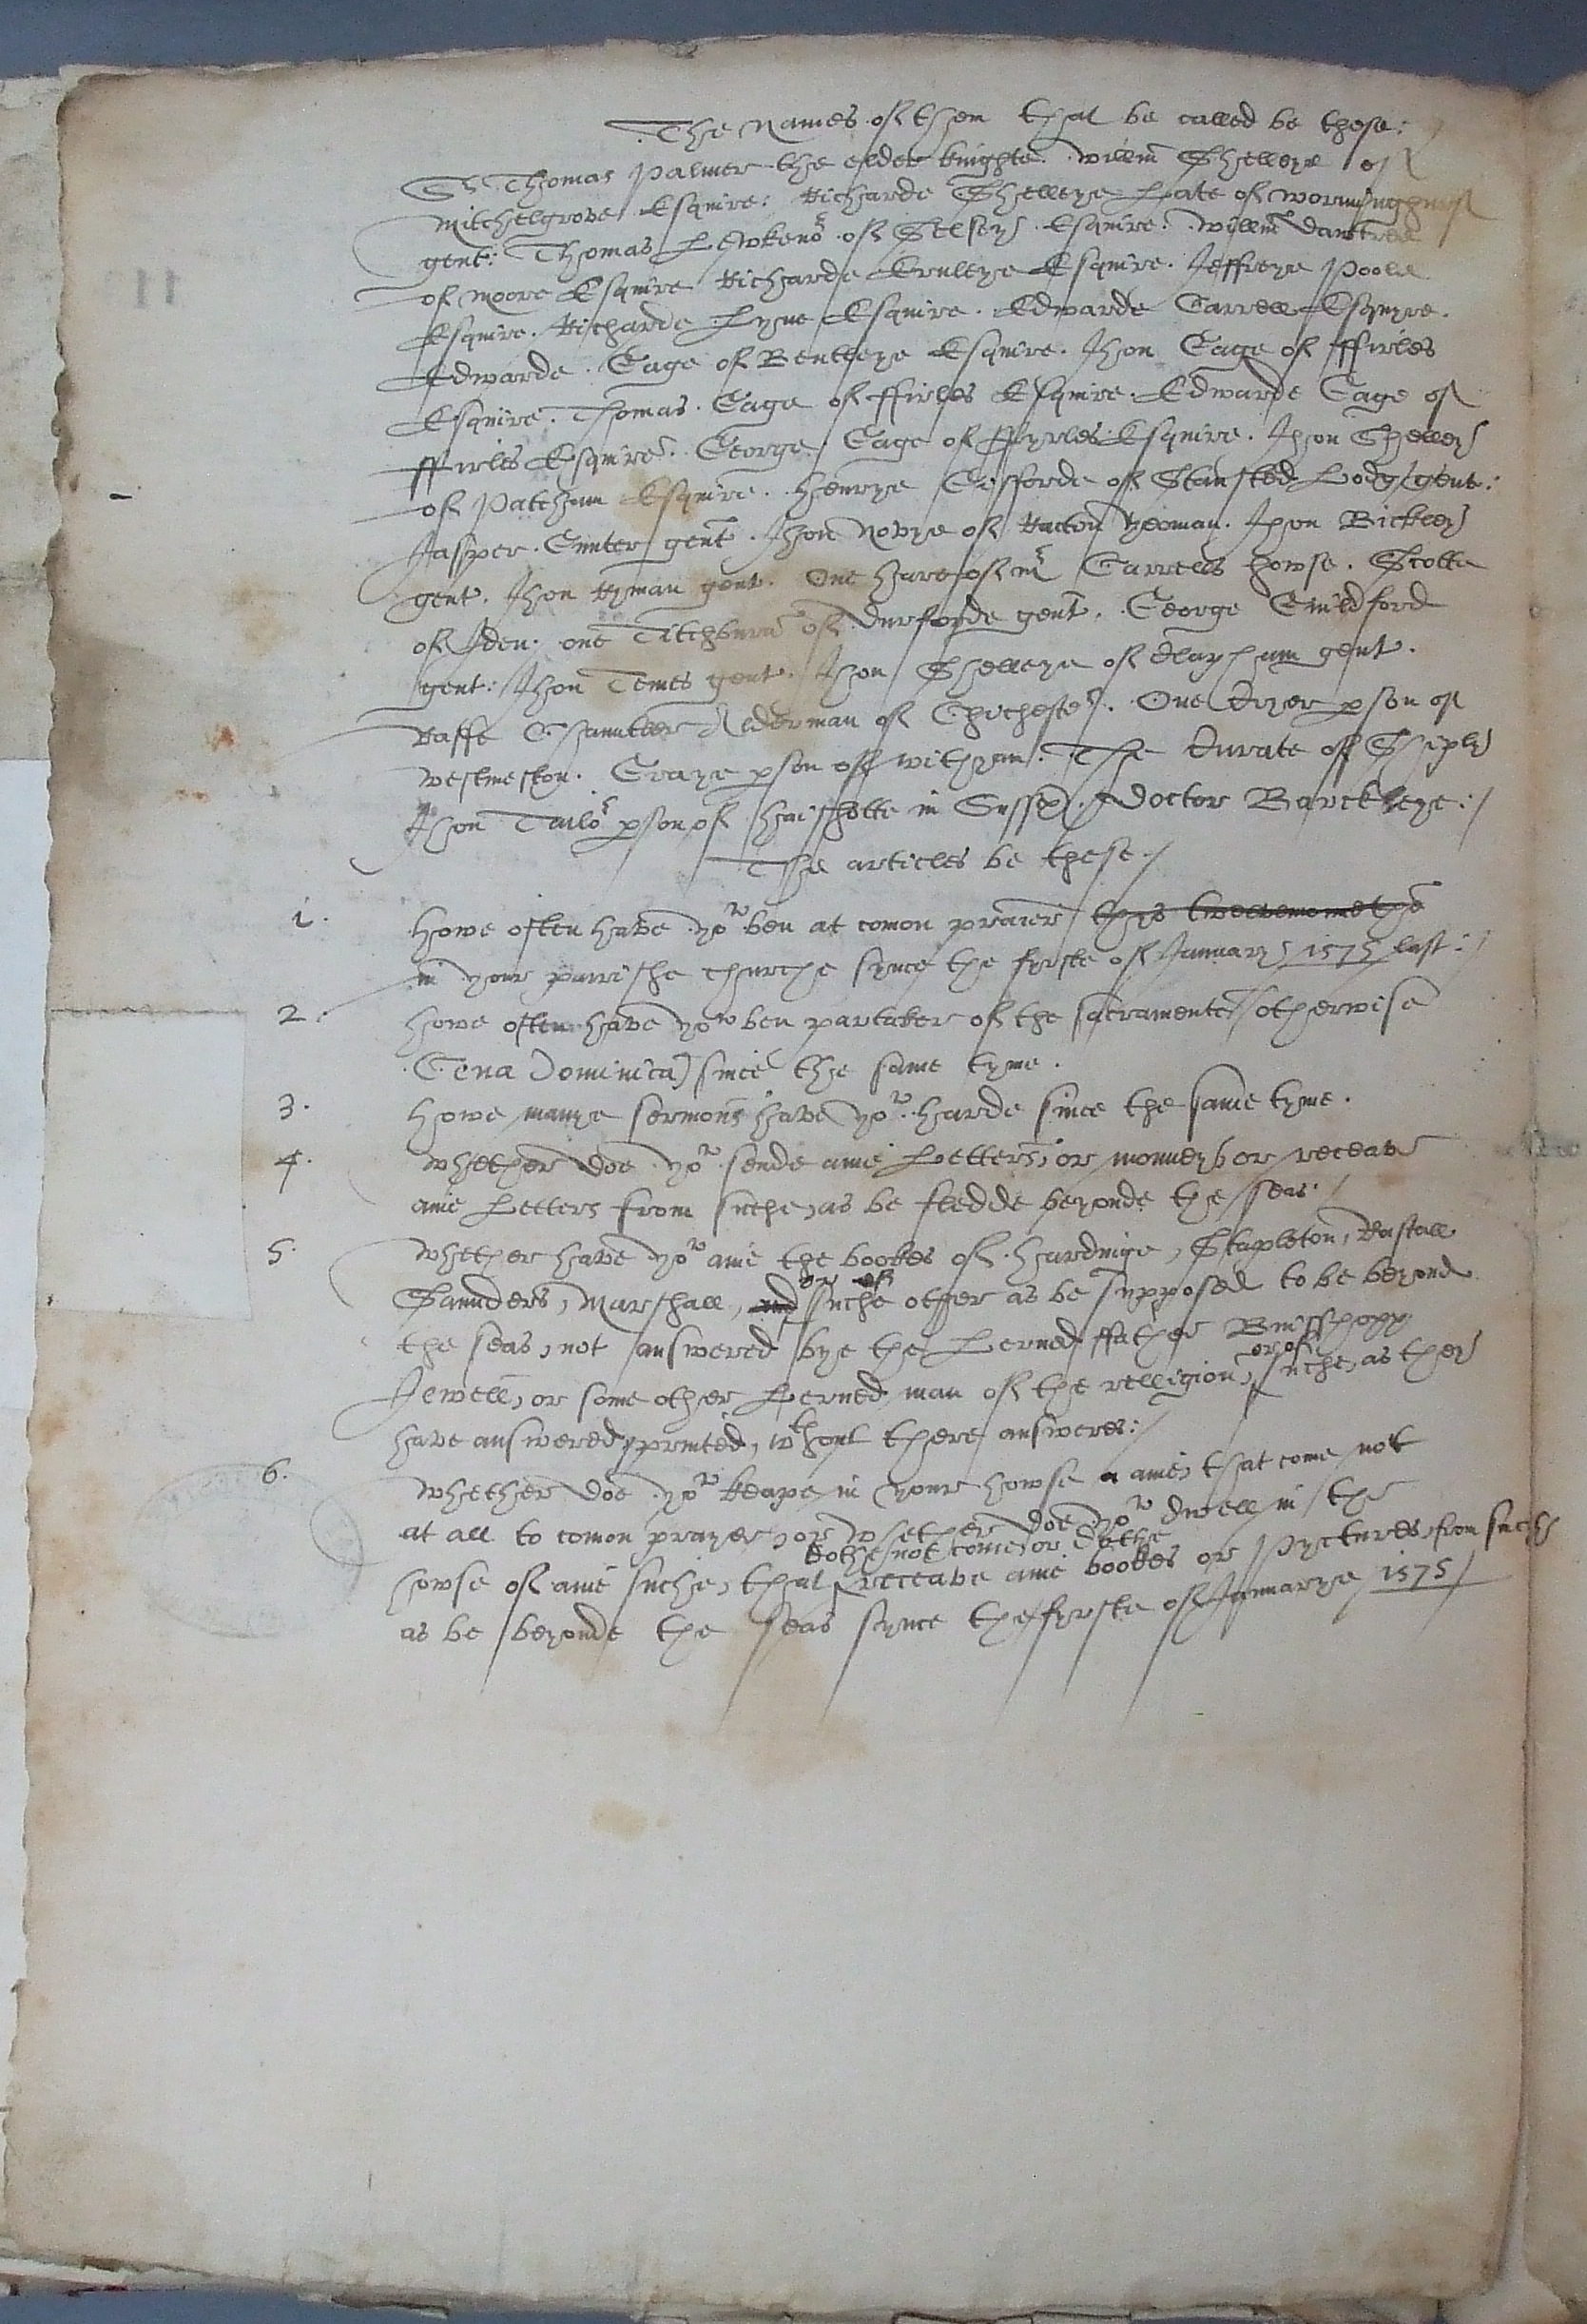 The Names of them that be called be these:
Sr Thomas Palmer the elder knighte. Willm Shelleye of
Mitchelgrove Esquire: Richarde Shelleye Late of Worminghurst
gent: Thomas Lewkenor of Selsey Esquire. Willm Dawtree
of Moore Esquire Richarde Ernleye Esquire. Jeffreye Poole
Esquire. Richarde Lyne Esquire. Edwarde Carrell Esquyre.
Edwarde Gage of Bentleye Esquire. Jhon Gage of ffirles
Esquire. Thomas Gage of ffirles Esquire. Edwarde Gage of
ffirles Esquire. George Gage of ffyrles Esquire. Jhon Shelley
of Patcham Esquire. Henrye Gifforde of Stansted Lodg gent:
Jasper Gunter gent. Jhon Novye of Racton Yeoman. Jhon Bickley
gent. Jhon Ryman gent. One Hare of mr Carrells howse. Scotte
of Iden. one Titchburn of Durforde gent. George Guildford
gent: Jhon Temes gent. Jhon Shelleye of Clapham gent.
Raffe Chauntler Alderman of Chichester. One Dryer pson of
Westmeston. Graye pson of Withyam. The Curate of Shiply
Jhon Tailor pson of in Sussex. Doctor Barckleye:/
The articles be these./
1. Howe often have yow ben at comon praier this twelvemonethe
in your parrishe churche synce the fyrste of January 1575 last:/
2. Howe often have yow ben partaker of the sacramente (otherwise
Cena Dominica) since the same tyme.
3. Howe manye sermons have yow harde since the same tyme.
4. Whether doe yow sende anie Letters, or monney, or receave
anie Letters from suche, as be fledde beyonde the seas./
5. Whether have yow anie the bookes of Hardinge, Stapleton, Rastall
Saunders, Marshall, and or of suche other as be supposed to be beyond
the seas, not answered bye the Lerned ffather Bushopp
Jewell, or some other Lerned man of the relligion, or of suche, as they
have answered, printed, wthout there answeres:/
6. Whether doe yow keape in your howse anie, that come not
at all to comon prayer, or whether doe yow dwell in the
howse of anie suche, that dothe not come, or dothe receave anie bookes or Pyctures, from suche
as be beyonde the seas synce the fyrste of Januarye 1575/